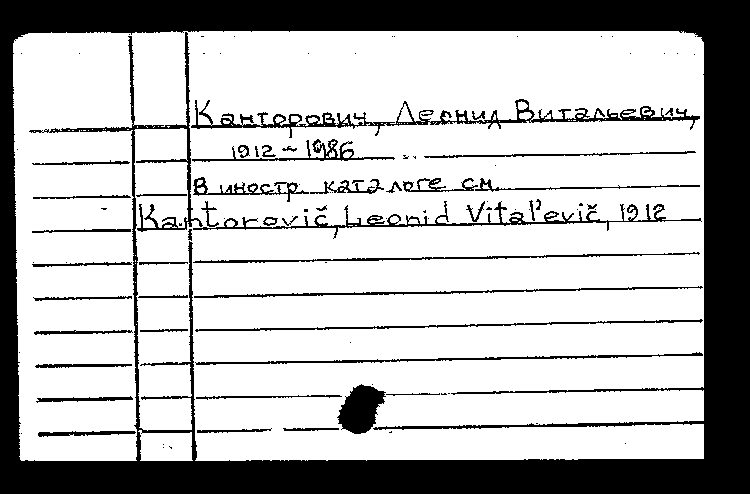 Канторович, Леонид Витальевич,
1912 - 1986
В иностр. каталоге см.
Kantorovič, Leonid Vital'evič, 1912